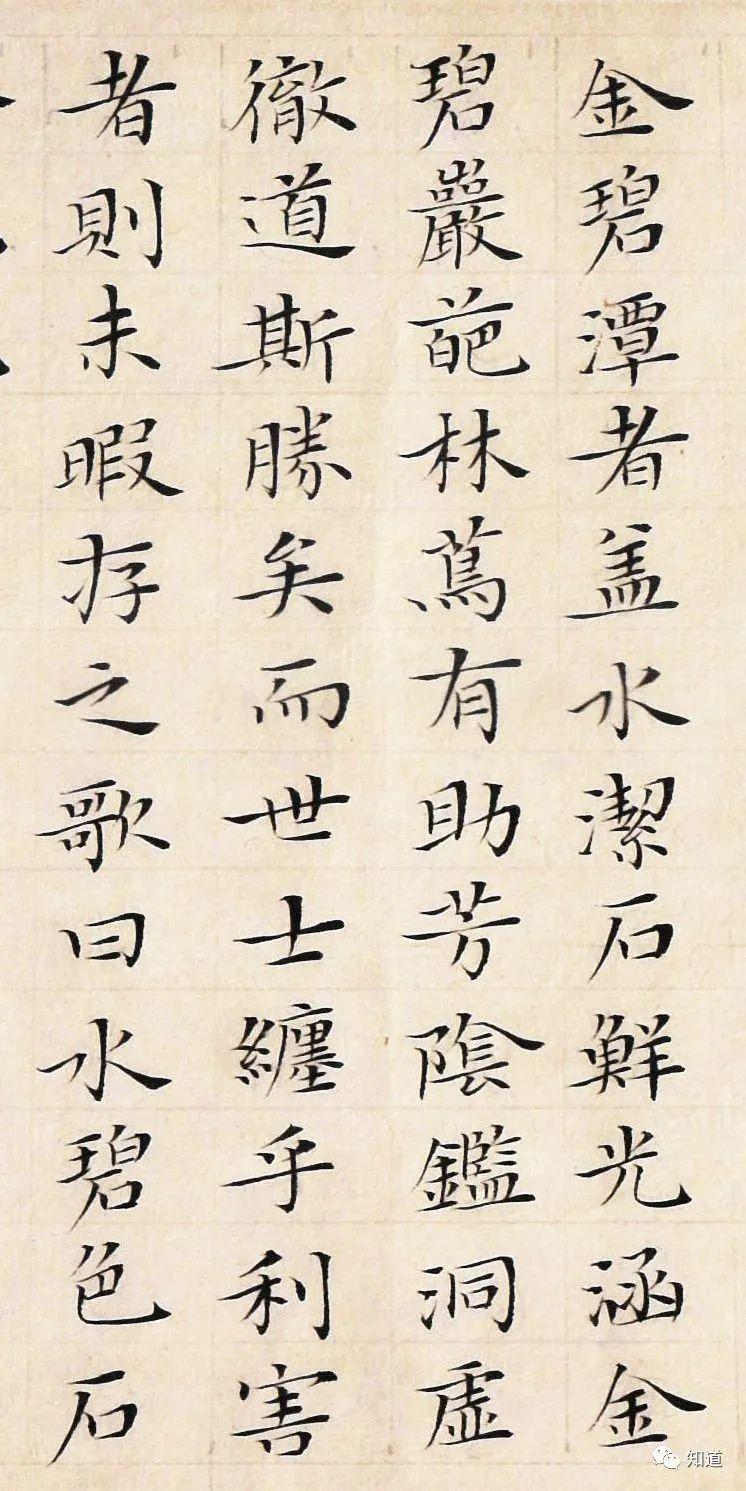 金碧潭者盖水潔石鮮光涵金
碧巖葩林蔦有助芳陰鑑洞虛
徹道斯勝矣而世士纏乎利害
者則未暇存之歌曰水碧色石
知道